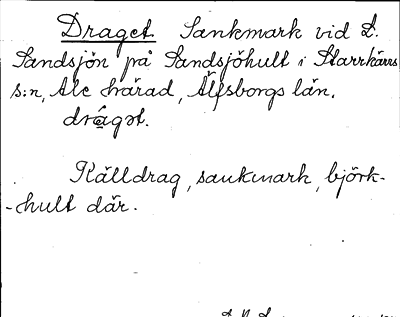 Draget Sankmark vid L.
Sandsjön på Sandsjöhult i Starrkärrs
s:n, Ale härad, Älfsborgs län.
drágət.
Källdrag, sankmark, björk-
-hult där.